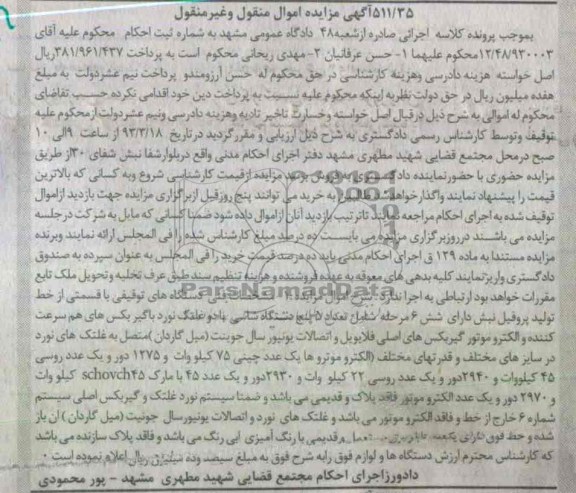 ۵۱۱/۳۵آگهی مزایده اموال منقول وغیرمنقول
بموجب پرونده کلاسه اجرائی صادره ازشعبه۴۸ دادگاه عمومی مشهد به شماره ثبت احکام محکوم علیه آقای
۱۲/۴۸/۹۳۰۰۰۳محکوم علیهما ۱- حسن عرفانیان ۲-مهدی ریحانی محکوم است به پرداخت ۳۸۱/۹۶۱/۴۳۷ریال
اصل خواسته هزینه دادرسی وهزینه کارشناسی در حق محکوم له حسن آرزومندو پرداخت نیم عشردولت به مبلغ
هفده میلیون ریال در حق دولت نظربه اینکه محکوم علیه نسبت به پرداخت دین خوداقدامی نکرده حسب تقاضای
محکوم له اموالی به شرح ذیل درقبال اصل خواسته وخسارت تاخیر تادیه وهزینه دادرسی ونیم عشردولت ازمحکوم علیه
توقیف وتوسط کارشناس رسمی دادگستری به شرح ذیل ارزیابی و مقررگردید درتاریخ ۹۳/۲/۱۸ از ساعت ۹الی ۱۰
صبح درمحل مجتمع قضایی شهید مطهری مشهد دفتر اجرای احکام مدنی واقع دربلوارشفا نبش شفای ۳۰از طریق
مزایده حضوری با حضورنماینده دادستان به فروش برسد مزایده ازقیمت کارشناسی شروع وبه کسانی که بالاترین
قیمت را پیشنهاد نمایند واگذارخواهد به خرید می توانند پنج روزقبل ازبرگزاری مزایده جهت بازدید ازاموال
توقیف شده به اجرای احکام مراجعه نمایند تاترتیب بازدید آنان ازاموال داده شود ضمنا کسانی که مایل به شرکت درجلسه
مزایده می باشند درروزبرگزاری مزایده می بایست ده درصد مبلغ کارشناس شده را فی المجلس ارائه نمایند وبرنده
مزایده مستندا به ماده ۱۲۹ ق اجرای احکام مدنی باید ده درصد قیمت خرید را فی المجلس به عنوان سپرده به صندوق
دادگستری واریزنمایند کلیه بدهی های معوقه به عهده فروشنده و هزینه تنظیم سند طبق عرف تخلیه وتحویل ملک تابع
مقررات خواهد بود ارتباطی به اجرا ندارد شرح اموال مزایده دستگاه های توقیفی با قسمتی از خط
تولید پروفیل نبش دارای شش ۶ مرحله شامل تعداد ۵ پنج دستگاه شاسی بادو غلتک نورد باگیربکس های هم سرعت
کننده و الکترو موتور گیربکس های اصلی فلایویل و اتصالات یونیور سال جوینت (میل گاردان )متصل به غلتک های نورد
در سایز های مختلف و قدرتهای مختلف (الکترو موترو ها یک عدد چینی ۷۵ کیلو وات و ۱۲۷۵ دور و یک عدد روسی
۴۵ کیلووات و ۲۹۴۰دور و یک عدد روسی ۲۲ کیلو وات و ۲۹۳۰دور و یک عدد ۴۵ با مارک schovch۴۵ کیلو وات
و ۲۹۷۰ دور و یک عدد الکترو موتور فاقد پلاک و قدیمی می باشد و ضمنا سیستم نورد غلتک و گیربکس اصلی سیستم
شماره ۶ خارج از خط و فاقد الکترو موتور می باشد و غلتک های نورد و اتصالات یونیورسال جونیت (میل گاردان ) آن باز
شده و خط فوق دارای یکعدد قدیمی با رنگ آمیزی ابی رنگ می باشد و فاقد پلاک سازنده می باشد
که کارشناس محترم ارزش دستگاه ها و لوازم فوق رابه شرح فوق به مبلغ سیصد وده میلیون ریال اعلام نموده است ۰
دادورزاجرای احکام مجتمع قضایی شهید مطهری مشهد - پور محمودی
ParsNamadData